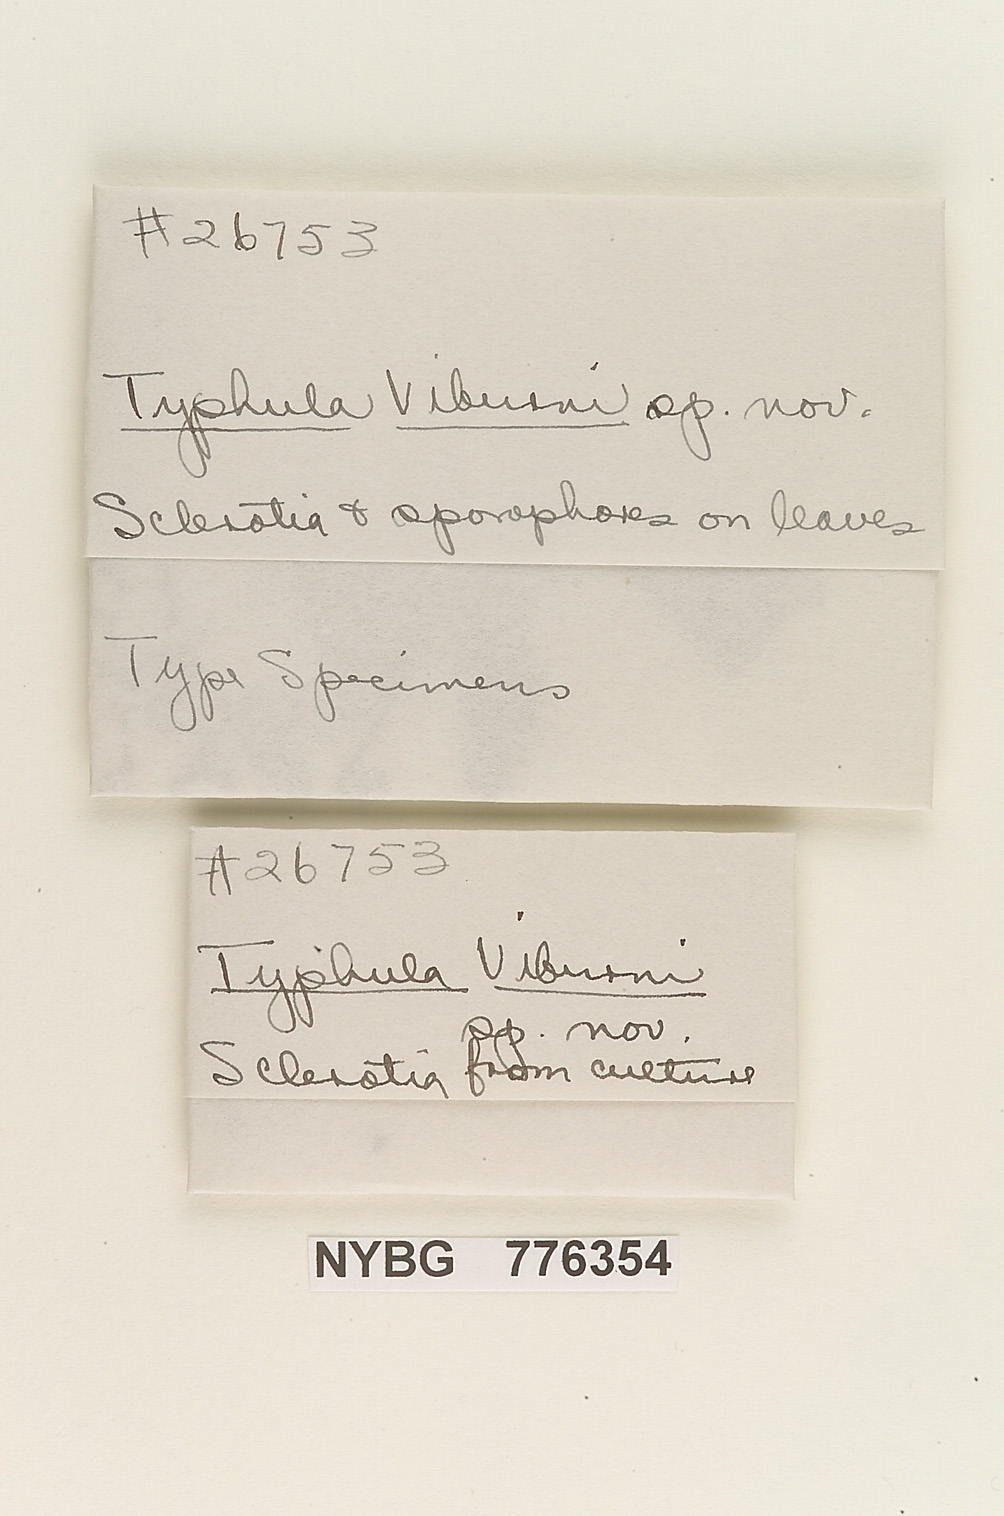 #26753
Typhula Viburni sp. nov.
Sclerotia & sporophores on leaves
Type Specimens
#26753
Typhula Viburni
sp. nov.
Sclerotia from culture
NYBG 776354